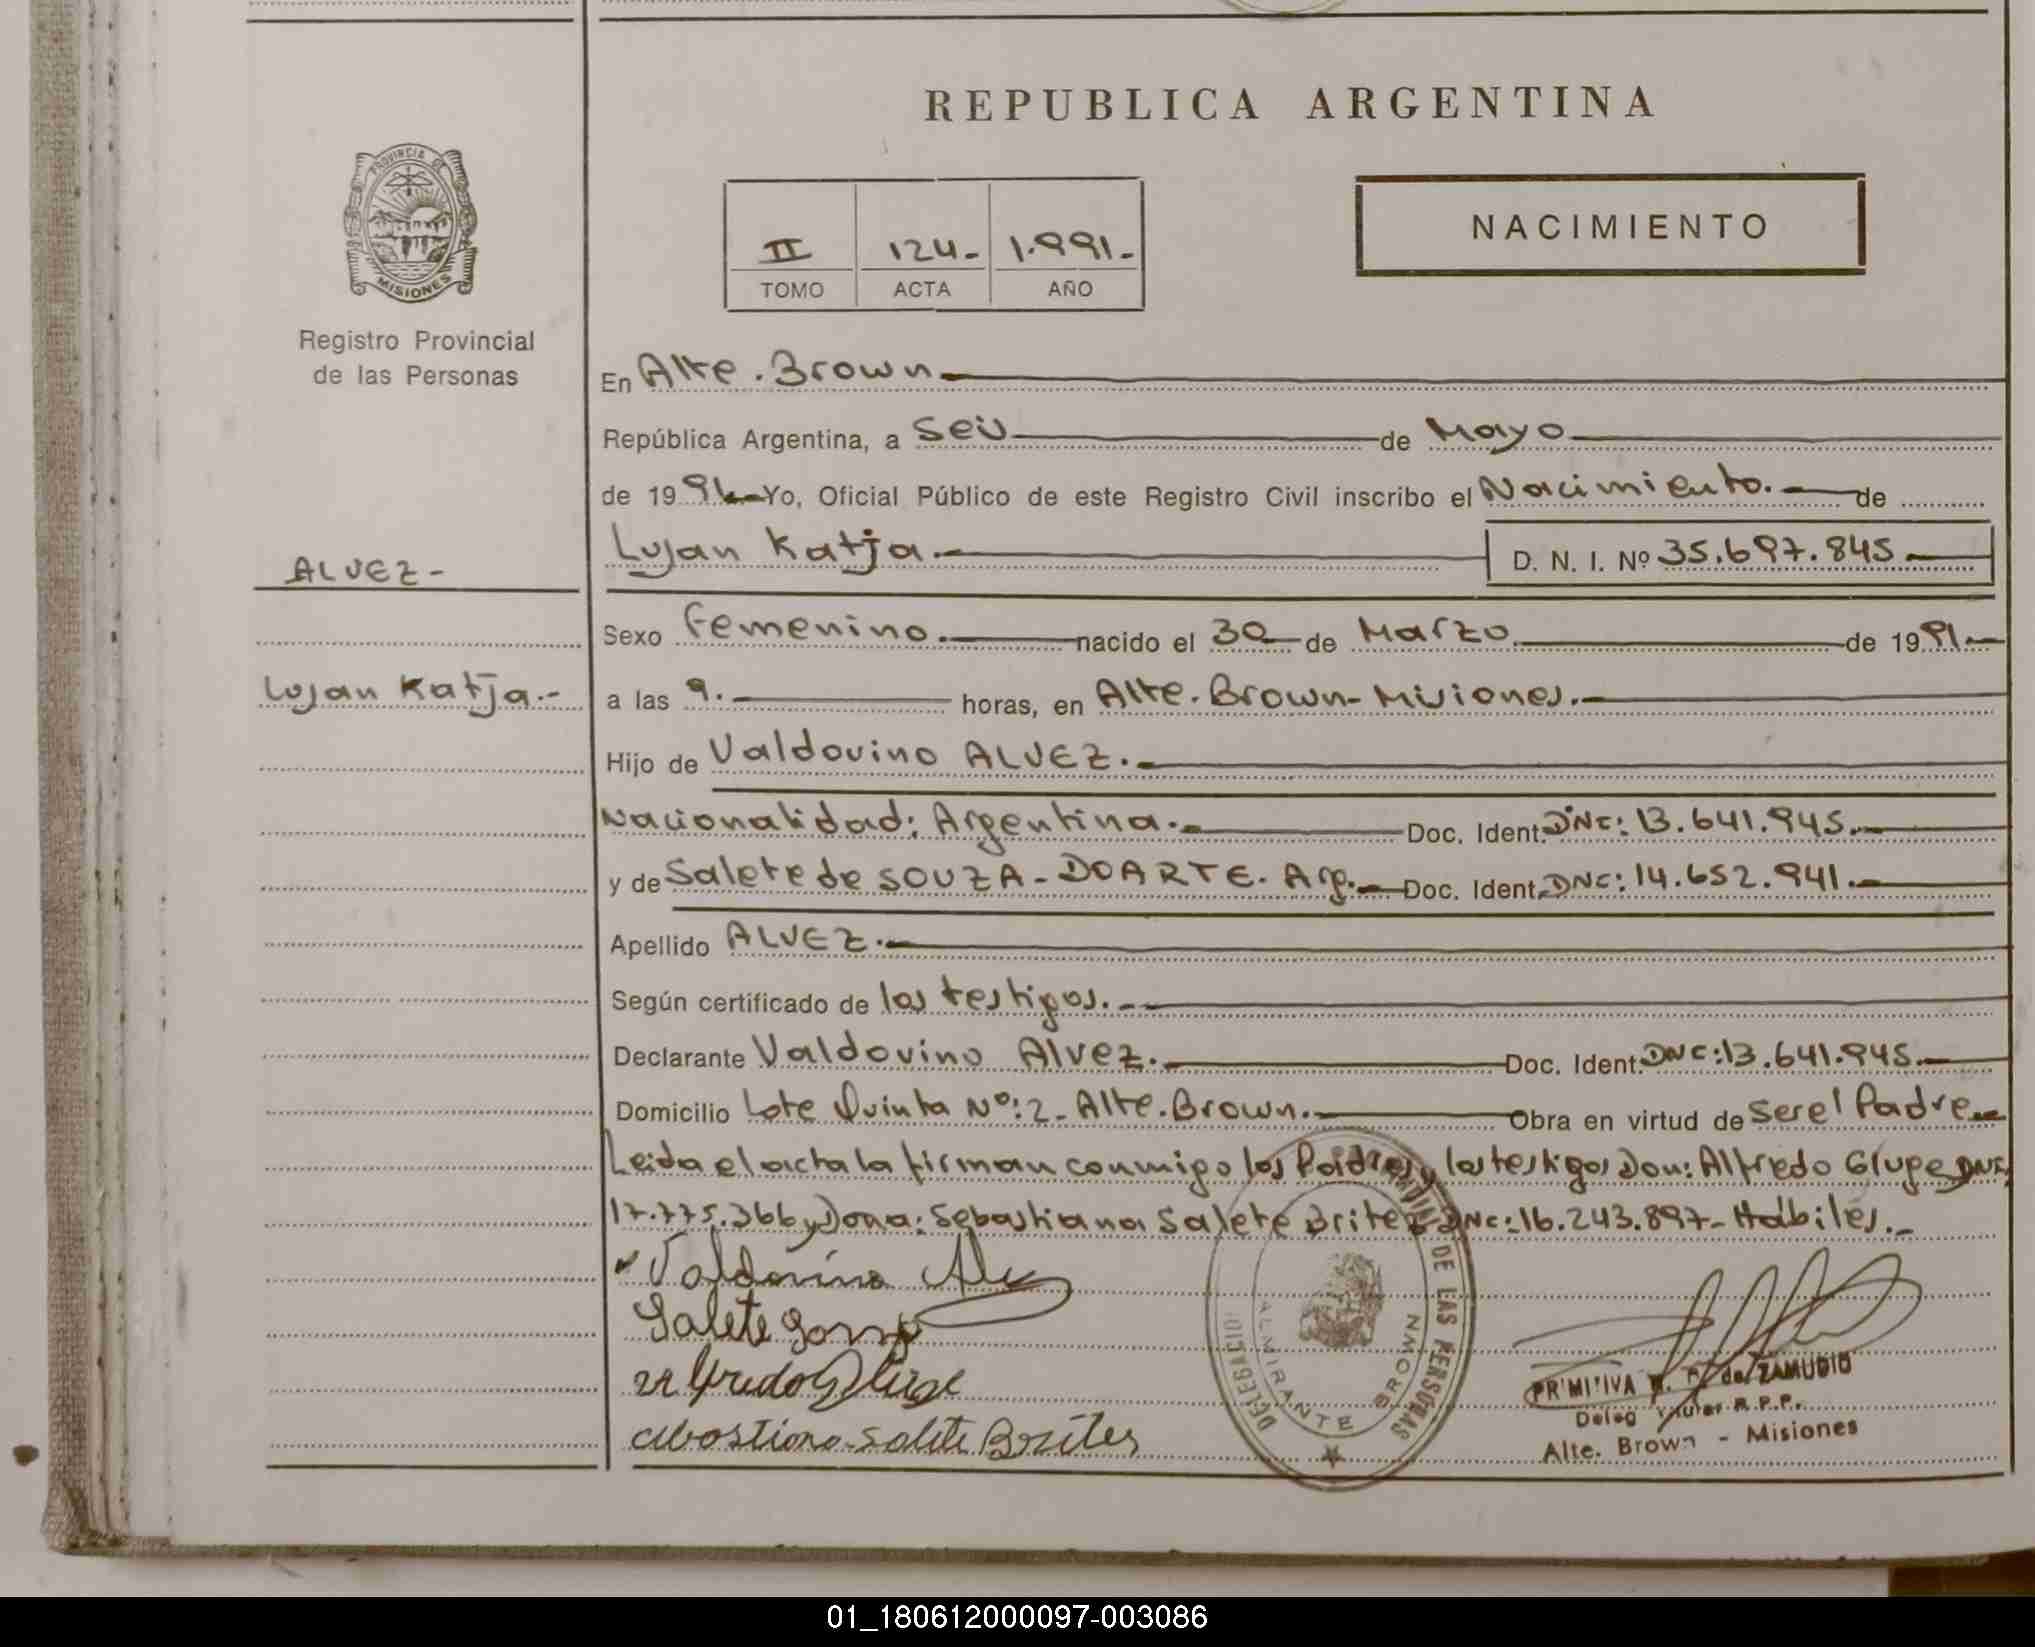 REPUBLICA ARGENTINA
PROVINCIA DE
MISIONES
Registro Provincial
de las Personas
II 124- 1.991-
TOMO ACTA AÑO
NACIMIENTO
En Alte. Brown.
República Argentina, a seis de Mayo
de 1991.- Yo, Oficial Público de este Registro Civil inscribo el Nacimiento.- de
ALVEZ-
Lujan Katja.- D. N. I. Nº 35.697.845.-
Sexo Femenino. nacido el 30 de Marzo de 1991.-
Lujan Katja.-
a las 9. horas, en Alte. Brown- Misiones.-
Hijo de Valdovino ALVEZ.-
Nacionalidad: Argentina.- Doc. Ident. DNC: 13.641.945.-
y de Salete de SOUZA - DOARTE. Arg.- Doc. Ident. DNC: 14.652.941.-
Apellido ALVEZ.-
Según certificado de los testigos.-
Declarante Valdovino Alvez. Doc. Ident. DNC: 13.641.945.-
Domicilio Lote Quinta Nº: 2- Alte. Brown.- Obra en virtud de ser el Padre.-
Leida el acta la firman conmigo los Padres y los testigos Don: Alfredo Gluge DNC:
17.775.366 y Doña: Sebastiana Salete Britez DNC: 16.243.897- Hábiles.-
Valdovino
Salete
Alfredo
Salete Britez
DE LAS PERSONAS
ALMIRANTE BROWN
PRIMITIVA de ZAMUDIO
Deleg R.P.P.
Alte. Brown - Misiones
01_180612000097-003086